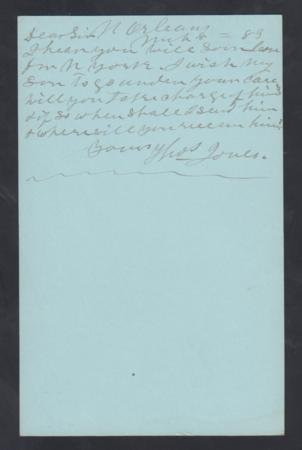 Dear Sir N Orleans
83
I hear you will soon leave
for N York. I wish my
son to go under your care
will you take charge of him
& if so when shall I send him
& where will you receive him
Yours Thos Jones.